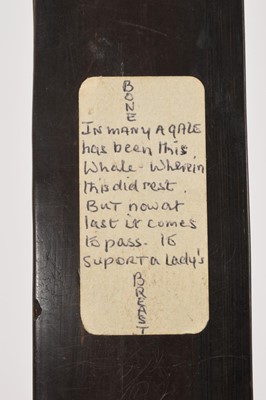 BONE
IN MANY A GALE
has been this
Whale - Wherein
this did rest.
BUT now at
last it comes
to pass. To
SUPORT a Lady's
BREAST